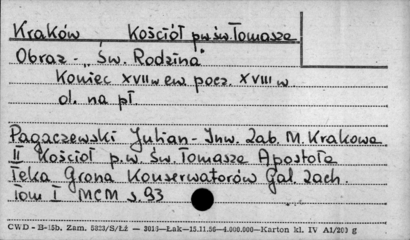 Kraków Kościół p.w. św. Tomasza
Obraz - "Św. Rodzina"
Koniec XVII w ew. pocz. XVIII w
ol. na pł
Pagaczewski Julian - Inw. Zab. M. Krakowa
II Kościół p.w. św. Tomasza Apostoła
Teka Grona Konserwatorów Gal. Zach.
Tom I MCM s. 93
CWD - B-15b. Zam. 5823/S/Łż — 3016—Łak—15.11.56—4.000.000—Karton kl. IV A1/200 g